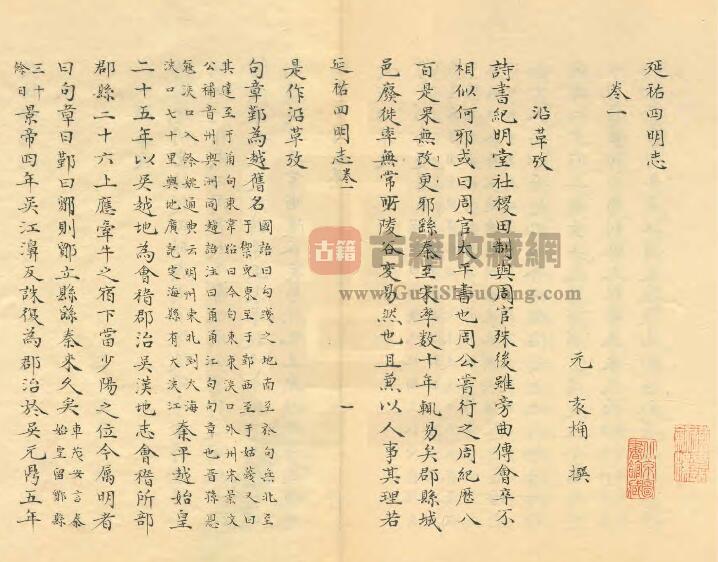 延祐四明志
卷一
元 袁桷 撰
沿革攷
詩書紀明堂社稷田制與周官殊後雖旁曲傳會卒不
相似何邪或曰周官太平書也周公嘗行之周紀歷八
百是果無改更邪繇秦至宋率數十年輒易矣郡縣城
邑廢徙率無常所陵谷变易然也且兼以人事其理若
延祐四明志 卷一
一
是作沿革攷
句章鄞為越舊名
國語曰句踐之地南至於句無北至
于禦兒東至于鄞西至于姑蔑又曰
其達至于甬句東韋昭曰今句東東浹口外州宋景文
公補音州與洲同越語注曰甬甬江句句章也晉孫恩
寇浹口入餘姚通典云明州東北到大海
浹口七十里輿地廣記定海縣有大浹江
秦平越始皇
二十五年以吳越地為會稽郡治吳漢地志會稽所部
郡縣二十六上應牽牛之宿下當少陽之位今屬明者
曰句章曰鄞曰鄮則鄮立縣繇秦來久矣
車茂安言秦
始皇留鄮縣
三十
餘日
景帝四年吳江濞反誅復為郡治於吳元鼎五年
古籍
古籍收藏網
www.GuJiShouCang.com